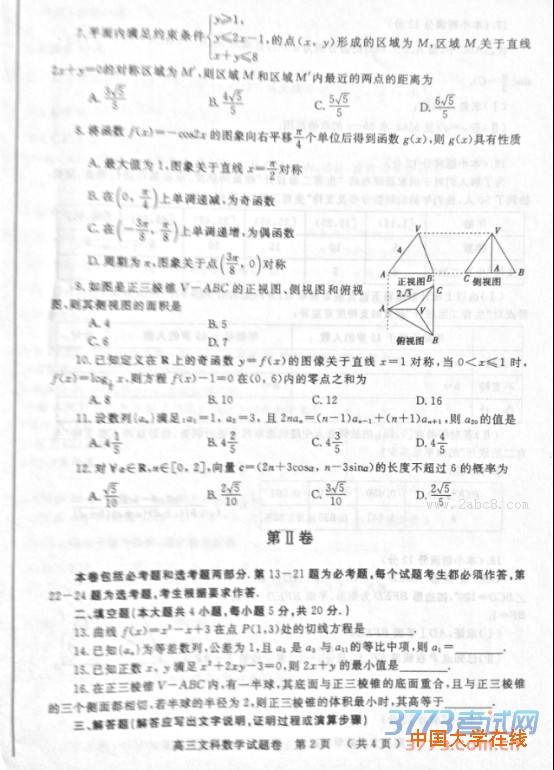 7.平面内满足约束条件{y≥1, y≤2x-1, x+y≤8 的点(x,y)形成的区域为M,区域M关于直线
2x+y=0的对称区域为M′,则区域M和区域M′内最近的两点的距离为
A. 3√5/5 B. 4√5/5 C. 5√5/5 D. 6√5/5
8.将函数f(x)=-cos2x的图象向右平移π/4个单位后得到函数g(x),则g(x)具有性质
A.最大值为1,图象关于直线x=π/2对称
B.在(0,π/4)上单调递减,为奇函数
C.在(-3π/8,π/8)上单调递增,为偶函数
D.周期为π,图象关于点(3π/8,0)对称
9.如图是正三棱锥V-ABC的正视图、侧视图和俯视
图,则其侧视图的面积是
A.4 B.5
C.6 D.7
V
4
A
B
正视图
V
C
B
侧视图
2√3
A
C
V
B
俯视图
10.已知定义在R上的奇函数y=f(x)的图像关于直线x=1对称,当0<x≤1时,
x,则方程f(x)-1=0在(0,6)内的零点之和为
A.8 B.10 C.12 D.16
11.设数列{aₙ}满足:a₁=1,a₂=3,且2naₙ=(n-1)aₙ₋₁+(n+1)aₙ₊₁,则a₂₀的值是
A.4 1/5 B.4 2/5 C.4 3/5 D.4 4/5
12.对∀α∈R,n∈[0,2],向量c=(2n+3cosα,n-3sinα)的长度不超过6的概率为
A. √5/10 B. 2√5/10 C. 3√5/10 D. 2√5/5
www.2abc8.com
第Ⅱ卷
本卷包括必考题和选考题两部分.第13-21题为必考题,每个试题考生都必须作答,第
22-24题为选考题,考生根据要求作答.
二、填空题(本大题共4小题,每小题5分,共20分.)
13.曲线f(x)=x³-x+3在点P(1,3)处的切线方程是
14.已知{aₙ}为等差数列,公差为1,且a₅是a₃与a₁₁的等比中项,则a₁=
15.已知正数x,y满足x²+2xy-3=0,则2x+y的最小值是
16.在正三棱锥V-ABC内,有一半球,其底面与正三棱锥的底面重合,且与正三棱锥
的三个侧面都相切,若半球的半径为2,则正三棱锥的体积最小时,其高等于
三、解答题(解答应写出文字说明,证明过程或演算步骤)
高三文科数学试题卷 第2页 (共4页)
3773考试网
中国大学在线